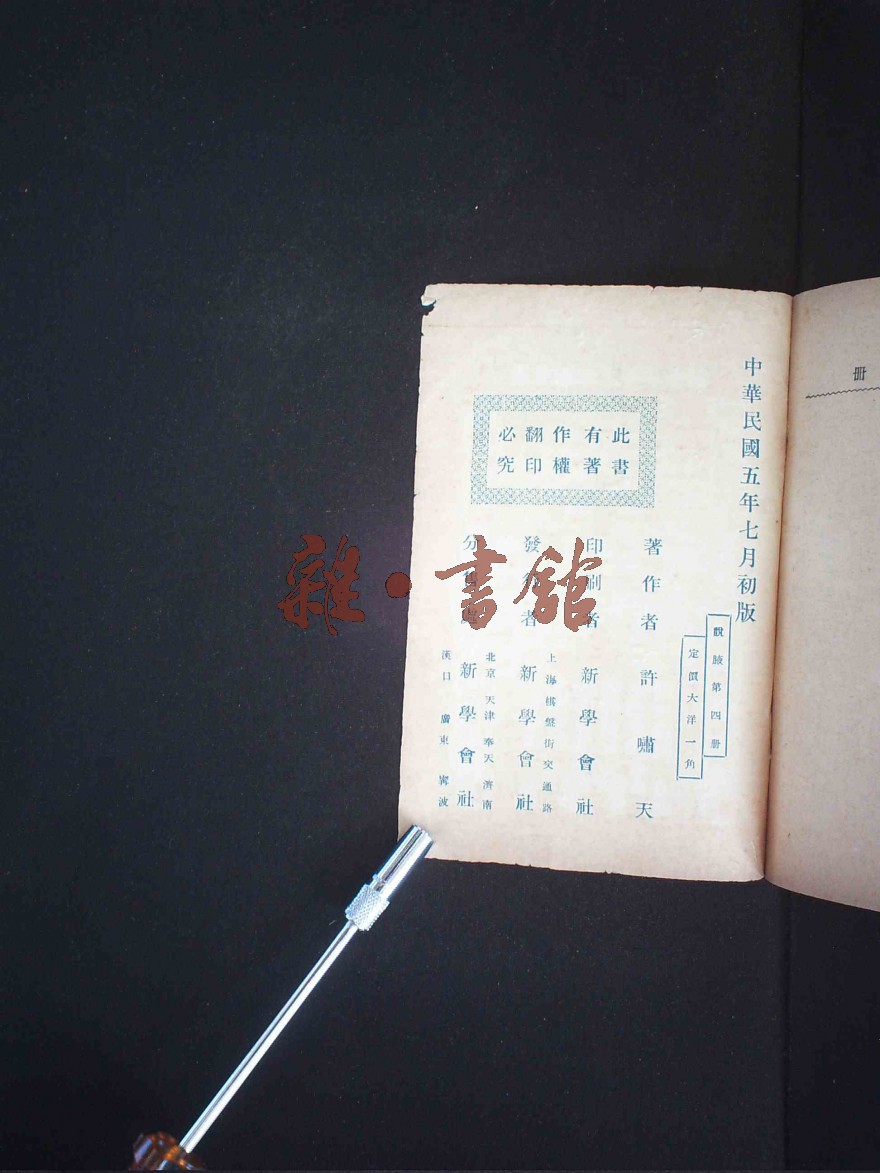 冊
中華民國五年七月初版
說腋第四册
定價大洋一角
此書
有著
作權
翻印
必究
著作者 許嘯天
印刷者 新學會社
上海棋盤街交通路
發行者 新學會社
北京 天津 奉天 濟南
分售處 新學會社
漢口 廣東 寧波
雜·書館